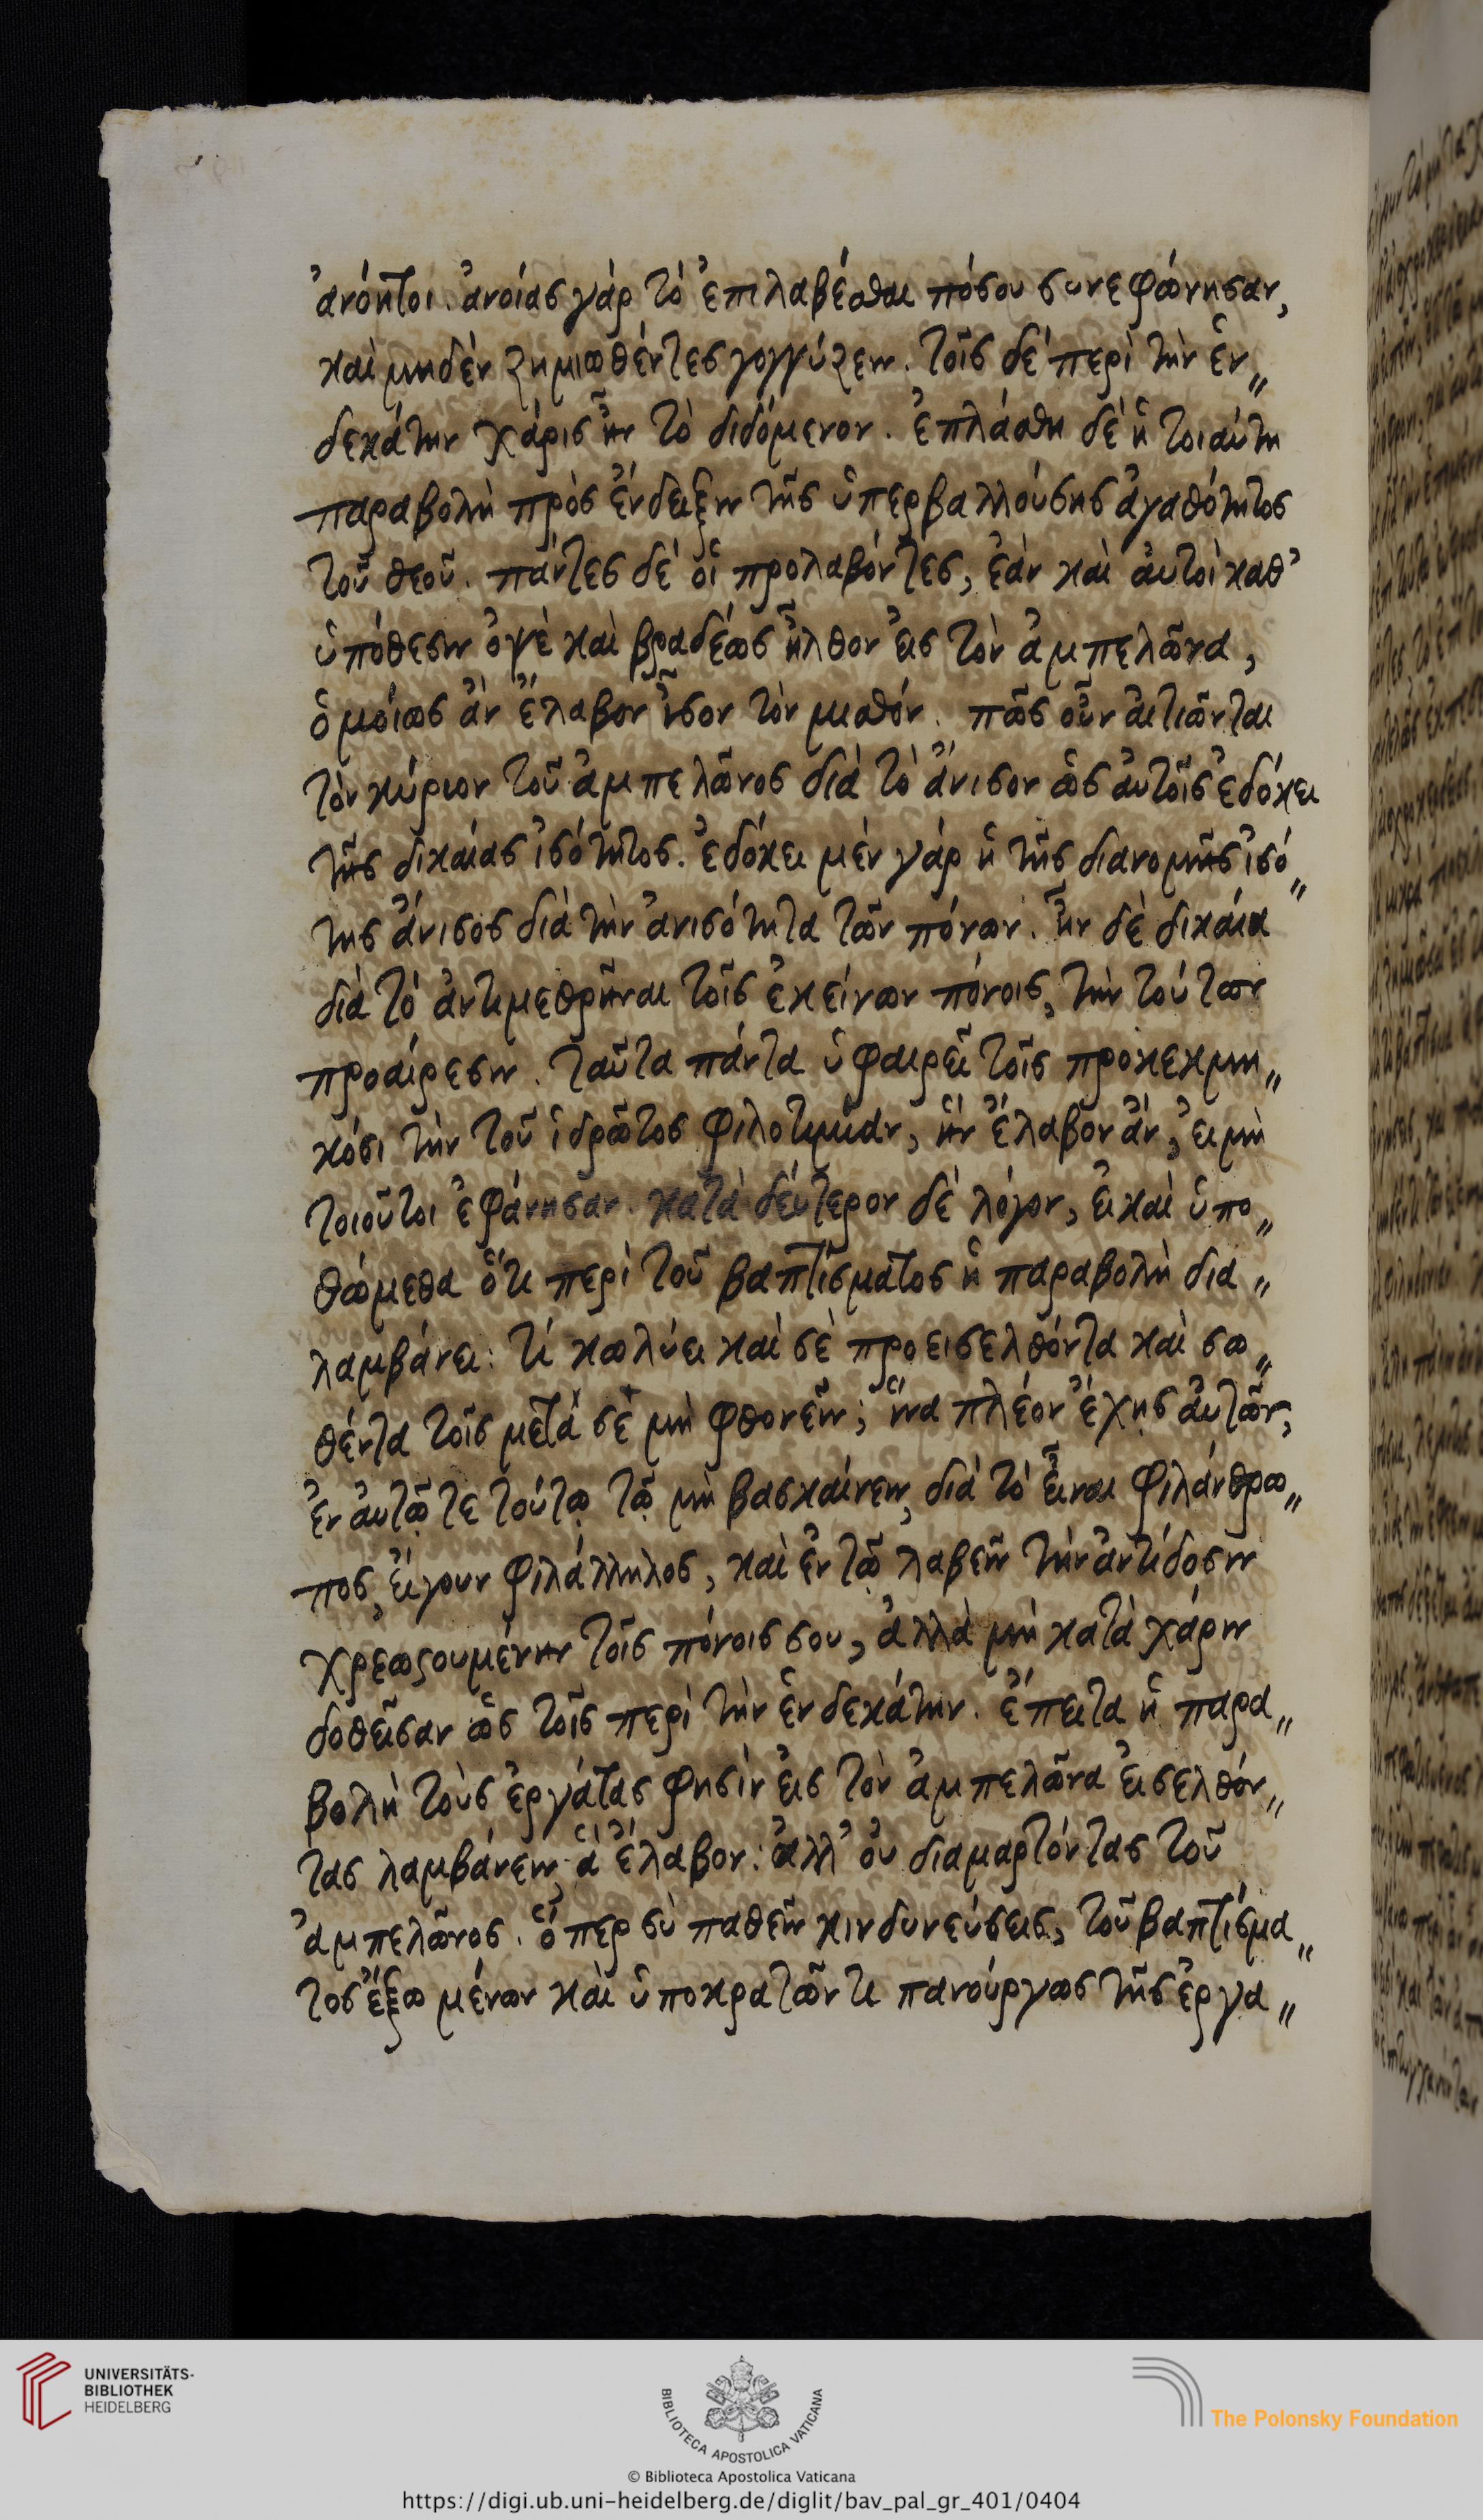 ἀνόητοι. ἀνοίας γάρ τό ἐπιλαβέσθαι πόσου συνεφώνησαν,
καὶ μηδέν ζημιωθέντες γογγύζειν. τοῖς δέ περὶ τὴν ἑν„
δεκάτην χάρις ἦν τὸ διδόμενον. ἐπλάσθη δέ ἡ τοιαύτη
παραβολὴ πρὸς ἔνδειξιν τῆς ὑπερβαλλούσης ἀγαθότητος
τοῦ θεοῦ. πάντες δέ οἱ προλαβόντες, ἐὰν καὶ ἀυτοὶ καθ'
ὑπόθεσιν ὀψὲ καὶ βραδέως ἦλθον ἐις τὸν ἀμπελῶνα,
ὁμοίως ἀν ἔλαβον ἶσον τὸν μισθόν. πῶς οὖν ἀιτιῶνται
τὸν κύριον τοῦ ἀμπελῶνος διὰ τὸ ἄνισον ὡς ἀυτοῖς ἐδόκει
τῆς δικαίας ἰσότητος. ἐδόκει μέν γάρ ἡ τῆς διανομῆς ἰσό„
της ἄνισος διὰ τὴν ἀνισότητα τῶν πόνων. ἦν δὲ δικάια
διὰ τό ἀντιμετρῆναι τοῖς ἐκείνων πόνοις, τὴν τούτων
προαίρεσιν. ταῦτα πάντα ὑφαιρεῖ τοῖς προκεκμη„
κόσι τὴν τοῦ ἱδρῶτος φιλοτιμίαν, ἣν ἔλαβον ἄν, ἐι μὴ
τοιοῦτοι ἐφάνησαν. κατὰ δεύτερον δὲ λόγον, ἐι καὶ ὑπο„
θώμεθα ὅτι περὶ τοῦ βαπτίσματος ἡ παραβολὴ δια„
λαμβάνει: τί κωλύει καὶ σὲ προεισελθόντα καὶ σω„
θέντα τοῖς μετὰ σὲ μὴ φθονεῖν; ἵνα πλέον ἔχῃς ἀυτῶν,
ἐν ἀυτῷ τε τούτῳ τῷ μὴ βασκαίνειν, διὰ τὸ εἶναι φιλάνθρω„
πος, ἔιγουν φιλάλληλος, καὶ ἐν τῷ λαβεῖν τὴν ἀντίδοσιν
χρεωστουμένην τοῖς πόνοις σου, ἀλλὰ μὴ κατὰ χάριν
δοθεῖσαν ὡς τοῖς περὶ τὴν ἑνδεκάτην. ἔπειτα ἡ παρα„
βολὴ τοὺς ἐργάτας φησὶν ἐις τὸν ἀμπελῶνα ἐισελθόν„
τας λαμβάνειν ἁ ἔλαβον: ἀλλ' ὀυ διαμαρτόντας τοῦ
ἀμπελῶνος. ὅπερ σὺ παθεῖν κινδυνεύσεις, τοῦ βαπτίσμα„
τος ἔξω μένων καὶ ὑποκρατῶν τι πανούργως τῆς ἐργα„
UNIVERSITÄTS-
BIBLIOTHEK
HEIDELBERG
BIBLIOTECA APOSTOLICA VATICANA
The Polonsky Foundation
© Biblioteca Apostolica Vaticana
https://digi.ub.uni-heidelberg.de/diglit/bav_pal_gr_401/0404